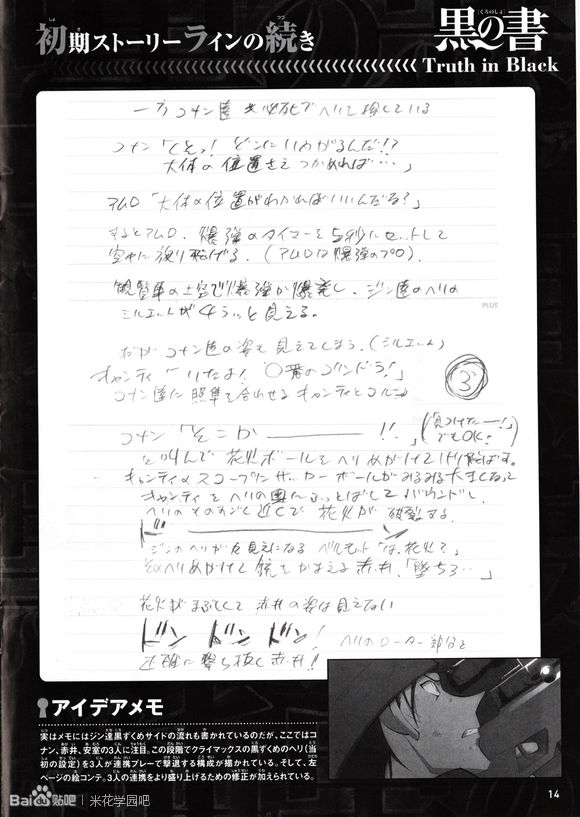 初期ストーリーラインの続き
黒の書
(くろのしょ)
Truth in Black
一方コナン達 必死でヘリを探している
コナン「くそっ! どこにいやがるんだ!?
大体の位置さえつかめれば…」
アムロ「大体の位置がわかればいいんだな?」
するとアムロ、爆弾のタイマーを5秒にセットして
空中に放り投げる。(アムロは爆弾のプロ)
観覧車の上空で爆弾が爆発し、ジン達のヘリの
シルエットが
と見える。
だがコナン達の姿も見えてしまう。(シルエット)
キャンティ「いたよ! 〇番のゴンドラ!」
コナン達に照準を合わせるキャンティとコルン
③
コナン「そこか――!!」
(「見つけたー!」でもOK!)
と叫んで花火ボールをヘリめがけてけり飛ばす。
キャンティのスコープにサッカーボールがみるみる大きくなって
キャンティをヘリの奥にふっとばしてバウンドし
ヘリのそのすごく近くで 花火が破裂する
ド――ン
ジンのヘリが丸見えになる ベルモット「は、花火?」
そのヘリめがけて銃をかまえる赤井「墜ちろ…」
花火がまぶしくて 赤井の姿は見えない
ドン ドン ドン!
ヘリのローター部分を
正確に撃ち抜く赤井!!
PLUS
アイデアメモ
実はメモにはジン達黒ずくめサイドの流れも書かれているのだが、ここではコ
ナン、赤井、安室の3人に注目。この段階でクライマックスの黒ずくめのヘリ(当
初の設定)を3人が連携プレーで撃退する構成が描かれている。そして、左
ページの絵コンテで、3人の連携をより盛り上げるための修正が加えられている。
14
Bai贴吧 | 米花学园吧